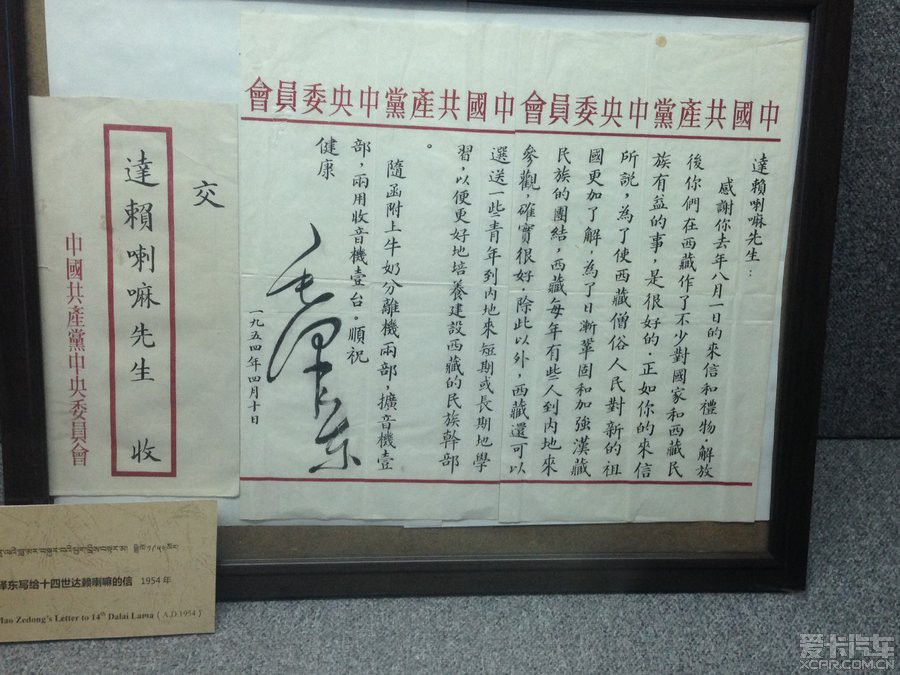 中國共產黨中央委員會
中國共產黨中央委員會
達賴喇嘛先生：
感謝你去年八月一日的來信和禮物．解放
後你們在西藏作了不少對國家和西藏民
族有益的事，是很好的．正如你的來信
所說，為了使西藏僧俗人民對新的祖
國更加了解，為了日漸鞏固和加強漢藏
民族的團結，西藏每年有些人到內地來
參觀，確實很好．除此以外，西藏還可以
選送一些青年到內地來短期或長期地學
習，以便更好地培養建設西藏的民族幹部
。
隨函附上牛奶分離機兩部，擴音機壹
部，兩用收音機壹台．順祝
健康
毛澤東
一九五四年四月十日
交
達賴喇嘛先生 收
中國共產黨中央委員會
泽东写给十四世达赖喇嘛的信 1954 年
Mao Zedong's Letter to 14th Dalai Lama ( A.D.1954 )
爱卡汽车
XCAR.COM.CN